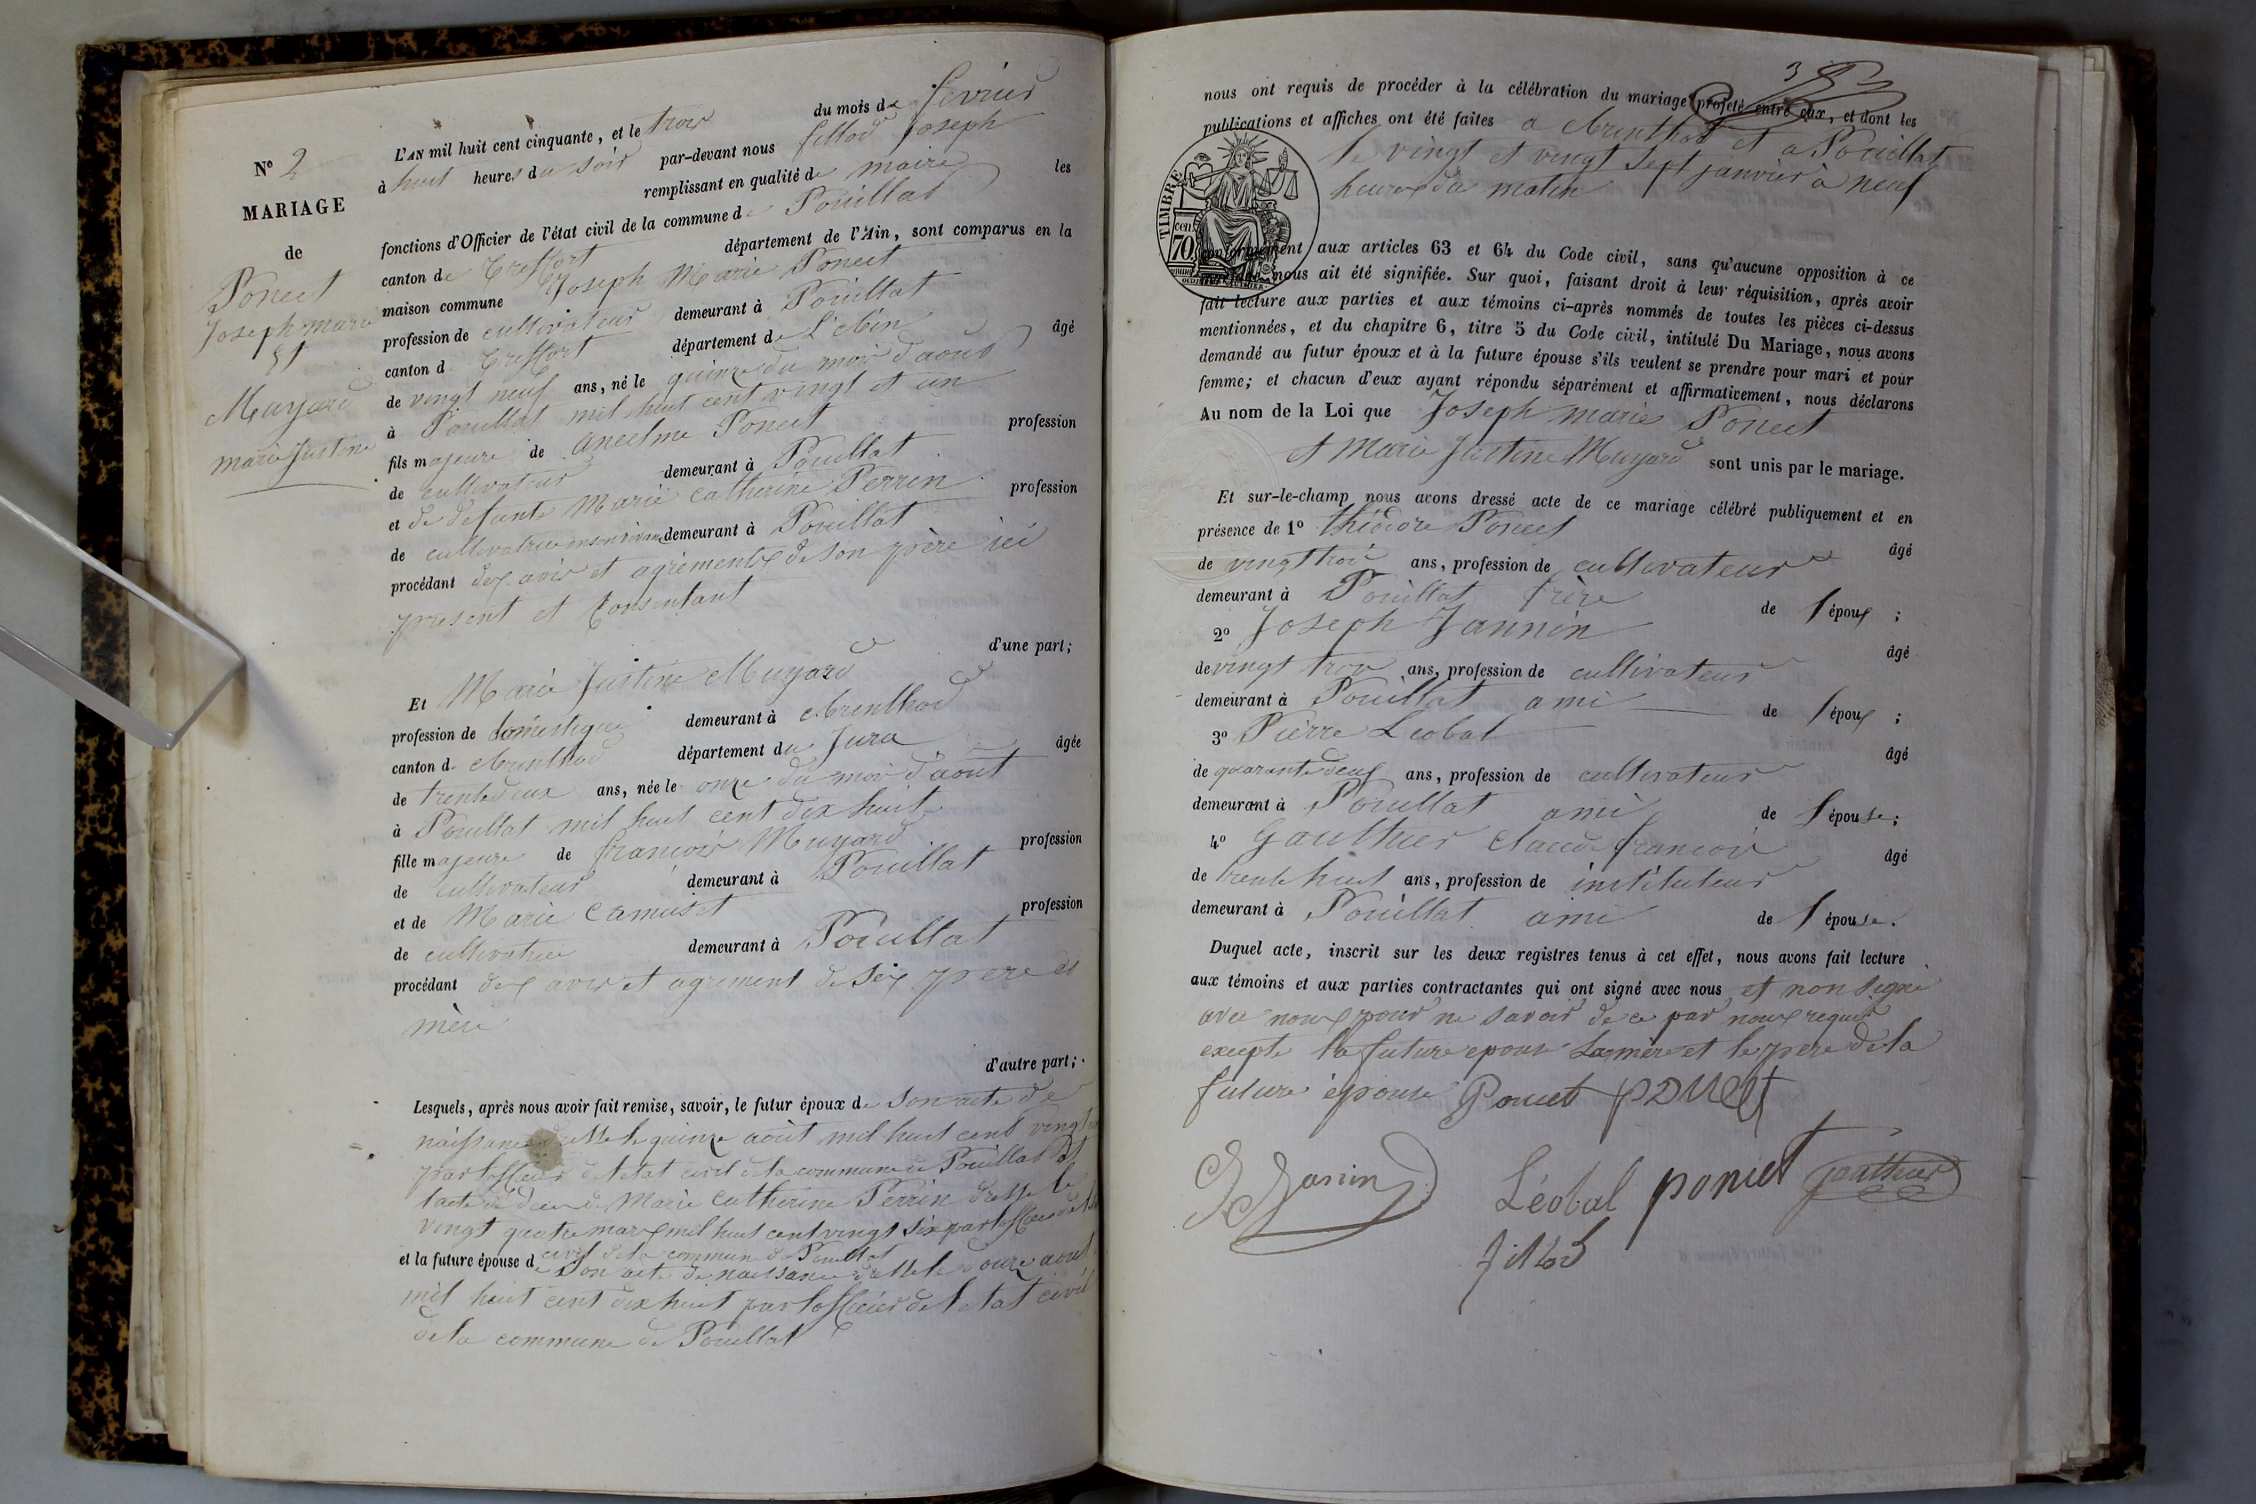 N° 2
MARIAGE
de
Poncet
Joseph marie
Et
Muyard
marie Justine
L'AN mil huit cent cinquante, et le trois du mois de fevrier
à huit heures du soir par-devant nous fillod Joseph
remplissant en qualité de maire les
fonctions d'Officier de l'état civil de la commune de Pouillat
canton de Treffort département de l'Ain, sont comparus en la
maison commune Joseph Marie Poncet
profession de cultivateur demeurant à Pouillat
canton d Treffort département de L'Ain âgé
de vingt neuf ans, né le quinze du mois d'aout
à Pouillat mil huit cent vingt et un
fils majeure de Anselme Poncet profession
de cultivateur demeurant à Pouillat
et de defunte Marie Catherine Perrin profession
de cultivatrice demeurant à Pouillat
procédant des avis et agréments de son père ici
present et Consentant
d'une part;
Et Marie Justine Muyard
profession de domestique demeurant à Arinthod
canton d Arinthod département du Jura âgée
de trente deux ans, née le onze du mois d'aout
à Pouillat mil huit cent dix huit
fille majeure de françois Muyard profession
de cultivateur demeurant à Pouillat
et de Marie Camuset profession
de cultivatrice demeurant à Pouillat
procédant des avis et agrement de ses pere et
mère
d'autre part;
Lesquels, après nous avoir fait remise, savoir, le futur époux de son acte de
naissance dressé le quinze août mil huit cent vingt
par l'officier de l'etat civil de la commune de Pouillat et
l'acte de décès de Marie Catherine Perrin dressé le
vingt quatre mars mil huit cent vingt six par l'officier de l'état
civil de la commune de Pouillat
et la future épouse de Son acte de naissance dressé le douze aout
mil huit cent dix huit par l'officier de l'etat civil
de la commune de Pouillat
3
nous ont requis de procéder à la célébration du mariage projeté entre eux, et dont les
publications et affiches ont été faites a Arinthod et a Pouillat
le vingt et vingt sept janvier à neuf
heures du matin
TIMBRE
70 cen
conformément aux articles 63 et 64 du Code civil, sans qu'aucune opposition à ce
mariage nous ait été signifiée. Sur quoi, faisant droit à leur réquisition, après avoir
fait lecture aux parties et aux témoins ci-après nommés de toutes les pièces ci-dessus
mentionnées, et du chapitre 6, titre 5 du Code civil, intitulé Du Mariage, nous avons
demandé au futur époux et à la future épouse s'ils veulent se prendre pour mari et pour
femme; et chacun d'eux ayant répondu séparément et affirmativement, nous déclarons
Au nom de la Loi que Joseph marie Poncet
et Marie Justine Muyard sont unis par le mariage.
Et sur-le-champ nous avons dressé acte de ce mariage célébré publiquement et en
présence de 1° théodore Poncet âgé
de vingt trois ans, profession de cultivateur
demeurant à Pouillat frère de l'époux ;
2° Joseph Jannin âgé
de vingt trois ans, profession de cultivateur
demeurant à Pouillat ami de l'époux ;
3° Pierre Léobal âgé
de quarante deux ans, profession de cultivateur
demeurant à Pouillat ami de l'épouse;
4° Gauthier Claude françois âgé
de trente huit ans, profession de instituteur
demeurant à Pouillat ami de l'épouse.
Duquel acte, inscrit sur les deux registres tenus à cet effet, nous avons fait lecture
aux témoins et aux parties contractantes qui ont signé avec nous et non signé
avec nous pour ne savoir de ce par nous requis
excepte la future epouse la mère et le pere de la
future épouse Poncet Poncet
J Janin Léobal poncet gauthier
fillod